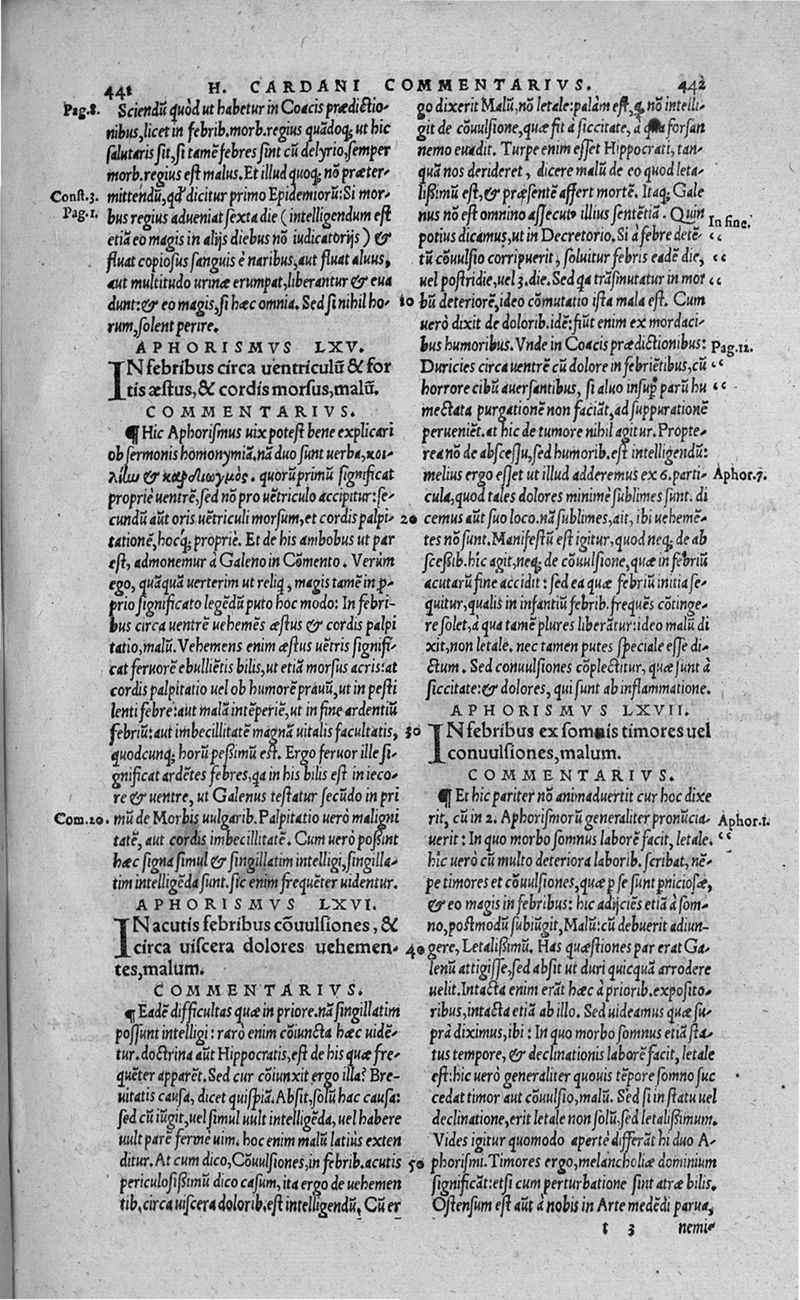 441 H. CARDANI COMMENTARIVS. 442
Pag.8. Sciendũ quòd ut habetur in Coacis prædictio-
nibus, licet in febrib. morb. regius quãdoq; ut hic
salutaris sit, si tamẽ febres sint cũ delyrio, semper
morb. regius est malus. Et illud quoq; nõ præter-
Const.3. mittendũ, qđ dicitur primo Epidemiorũ: Si mor-
Pag.1. bus regius adueniat sexta die (intelligendum est
etiã eo magis in alijs diebus nõ iudicatorijs) &
fluat copiosus sanguis è naribus, aut fluat aluus,
aut multitudo urinæ erumpat, liberantur & eua
dunt: & eo magis, si hæc omnia. Sed si nihil ho-
rum, solent perire.
APHORISMVS LXV.
IN febribus circa uentriculũ & for
tis æstus, & cordis morsus, malũ.
COMMENTARIVS.
¶ Hic Aphorismus uix potest bene explicari
ob sermonis homonymiã. nã duo sunt uerba, κοι-
λίαυ & καρδιωγμός. quorũ primũ significat
propriè uentrẽ, sed nõ pro uẽtriculo accipitur: se-
cundũ aũt oris uẽtriculi morsum, et cordis palpi
tationẽ, hocq; propriè. Et de his ambobus ut par
est, admonemur à Galeno in Cõmento. Verùm
ego, quãquã uerterim ut reliq, magis tamẽ in p-
prio significato legẽdũ puto hoc modo: In febri-
bus circa uentrẽ uehemẽs æstus & cordis palpi
tatio, malũ. Vehemens enim æstus uẽtris signifi-
cat feruorẽ ebulliẽtis bilis, ut etiã morsus acris: at
cordis palpitatio uel ob humorẽ prauũ, ut in pesti
lenti febre: aut malã intẽperiẽ, ut in fine ardentiũ
febriũ: aut imbecillitatẽ magnã uitalis facultatis,
quodcunq; horũ peßimũ est. Ergo feruor ille si-
gnificat ardẽtes febres, qa in his bilis est in ieco-
re & uentre, ut Galenus testatur secũdo in pri
Com.20. mũ de Morbis uulgarib. Palpitatio uerò maligni
tatẽ, aut cordis imbecillitatẽ. Cum uerò poßint
hæc signa simul & singillatim intelligi, singilla-
tim intelligẽda sunt. sic enim frequẽter uidentur.
APHORISMVS LXVI.
IN acutis febribus cõuulsiones, &
circa uiscera dolores uehemen-
tes, malum.
COMMENTARIVS.
¶ Eadẽ difficultas quæ in priore. nã singillatim
possunt intelligi: rarò enim cõiuncta hæc uidẽ-
tur. doctrina aũt Hippocratis, est de his quæ fre-
quẽter apparẽt. Sed cur cõiunxit ergo illa? Bre-
uitatis causa, dicet quispiã. Absit, solũ hac causa:
sed cũ iũgit, uel simul uult intelligẽda, uel habere
uult parẽ fermè uim. hoc enim malũ latiùs exten
ditur. At cum dico, Cõuulsiones, in febrib. acutis
periculosißimũ dico casum, ita ergo de uehemen
tib. circa uiscera dolorib. est intelligendũ. Cũ er
go dixerit Malũ, nõ letale: palàm est, q nõ intelli-
git de cõuulsione, quæ fit à siccitate, à forsan
nemo euadit. Turpe enim esset Hippocrati, tan-
quã nos derideret, dicere malũ de eo quod leta-
lißimũ est, & præsentẽ affert mortẽ. Itaq; Gale
nus nõ est omnino assecutus illius sentẽtiã. Quin
In fine. potius dicamus, ut in Decretorio. Si à febre detẽ-
“ tũ cõuulsio corripuerit, soluitur febris eadẽ die,
“ uel postridie, uel 3. die. Sed qa trãsmutatur in mor
10 bũ deteriorẽ, ideo cõmutatio ista mala est. Cum
uerò dixit de dolorib. idẽ: fiũt enim ex mordaci-
Pag.12. bus humoribus. Vnde in Coacis prædictionibus:
“ Duricies circa uentrẽ cũ dolore in febriẽtibus, cũ
“ horrore cibũ auersantibus, si aluo insup parũ hu
mectata purgationẽ non faciãt, ad suppurationẽ
perueniẽt. at hic de tumore nihil agitur. Propte-
rea nõ de abscessu, sed humorib. est intelligendũ:
Aphor.7. melius ergo esset ut illud adderemus ex 6. parti-
cula, quod tales dolores minimè sublimes sunt. di
20 cemus aũt suo loco. nã sublimes, ait, ibi uehemẽ-
tes nõ sunt. Manifestũ est igitur, quod neq; de ab
sceßib. hic agit, neq; de cõuulsione, quæ in febriũ
acutarũ fine accidit: sed ea quæ febriũ initia se-
quitur, qualis in infantiũ febrib. frequẽs cõtinge-
re solet, à qua tamẽ plures liberãtur: ideo malũ di
xit, non letale. nec tamen putes speciale esse di-
ctum. Sed conuulsiones cõplectitur, quæ sunt à
siccitate: & dolores, qui sunt ab inflammatione.
APHORISMVS LXVII.
30 IN febribus ex somnis timores uel
conuulsiones, malum.
COMMENTARIVS.
¶ Et hic pariter nõ animaduertit cur hoc dixe
Aphor.1. rit, cũ in 2. Aphorismorũ generaliter pronũcia-
“ uerit: In quo morbo somnus laborẽ facit, letale.
hic uerò cũ multo deteriora laborib. scribat, nẽ-
pe timores et cõuulsiones, quæ p se sunt pniciosæ,
& eo magis in febribus: hic adijciẽs etiã à som-
no, postmodũ subiũgit, Malũ: cũ debuerit adiun-
40 gere, Letalißimũ. Has quæstiones par erat Ga-
lenũ attigisse, sed absit ut duri quicquã arrodere
uelit. Intacta enim erãt hæc à priorib. exposito-
ribus, intacta etiã ab illo. Sed uideamus quæ su-
prà diximus, ibi: In quo morbo somnus etiã sta-
tus tempore, & declinationis laborẽ facit, letale
est: hic uerò generaliter quouis tẽpore somno suc
cedat timor aut cõuulsio, malũ. Sed si in statu uel
declinatione, erit letale non solũ, sed letalißimum.
Vides igitur quomodo apertè differãt hi duo A-
50 phorismi. Timores ergo, melancholiæ dominium
significãt: etsi cum perturbatione sint atræ bilis.
Ostensum est aũt à nobis in Arte medẽdi parua,
t 3 nemi-